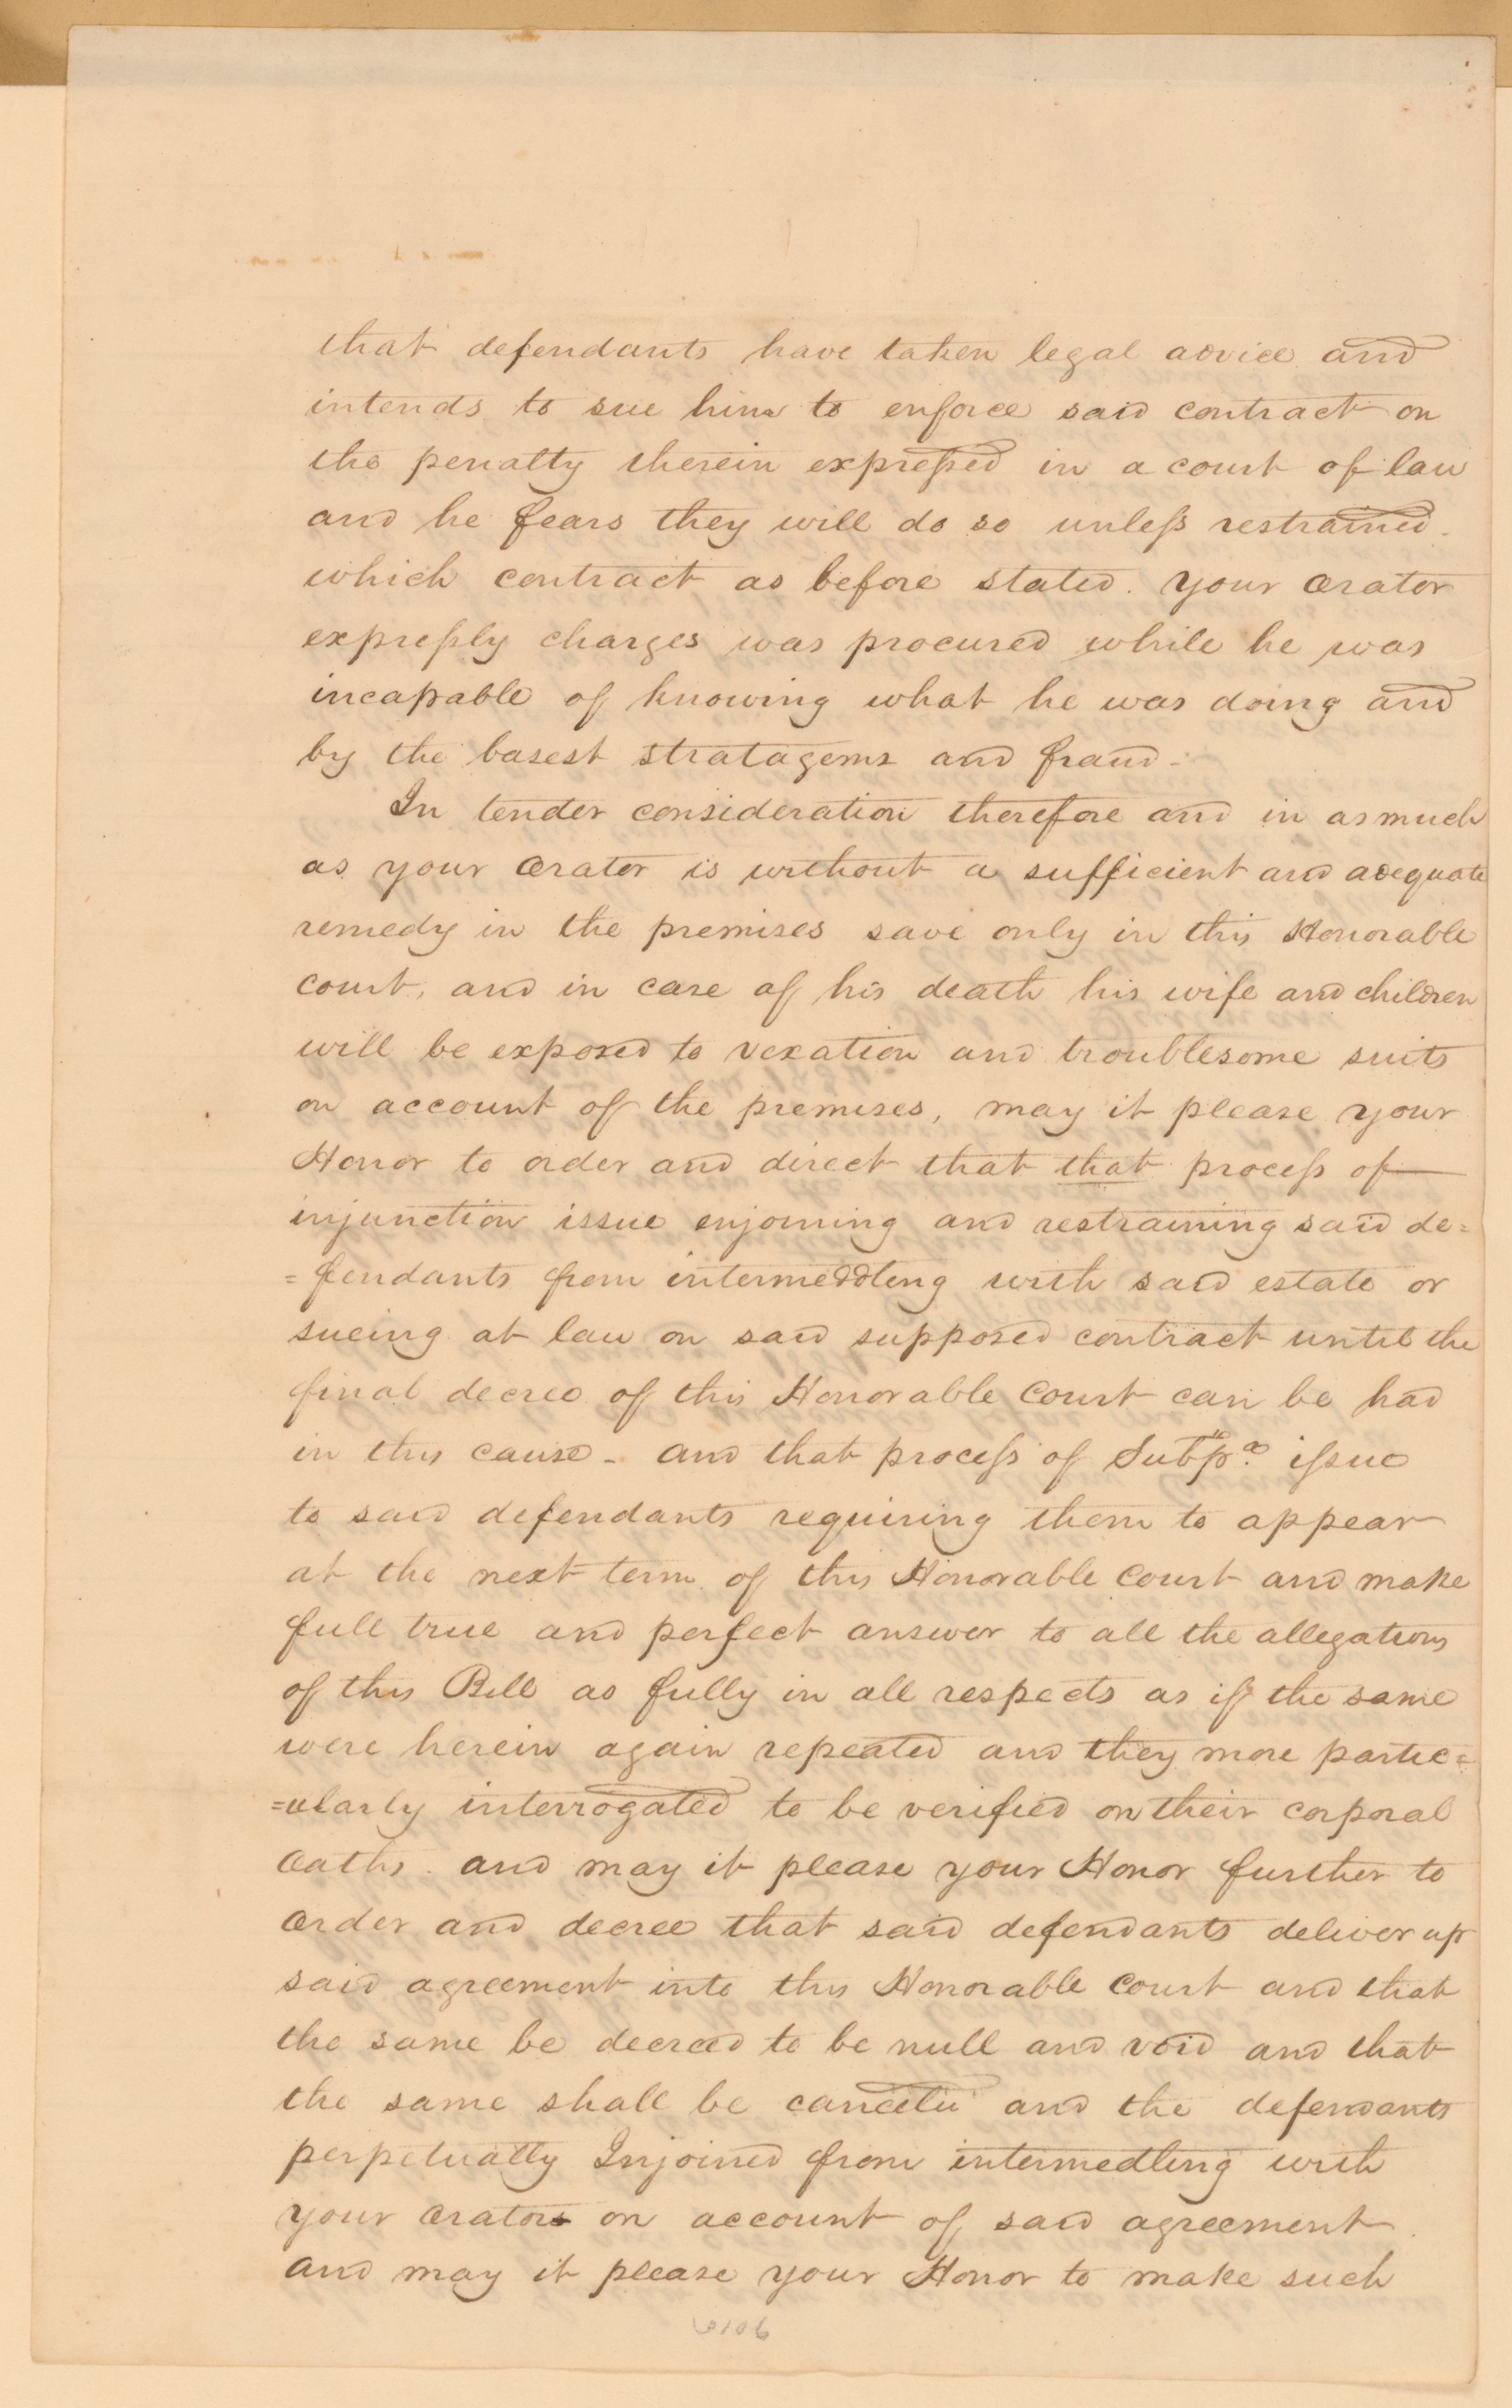 that defendants have taken legal advice and
intends to sue him to enforce said contract on
the penalty therein expreſsed in a court of law
and he fears they will do so unleſs restrained.
which contract as before stated. your orator
expreſsly charges was procured while he was
incapable of knowing what he was doing and
by the basest stratagems and fraud-
In tender consideration therefore and in as much
as your orator is without a sufficient and adequate
remedy in the premises save only in this Honorable
court, and in case of his death his wife and children
will be exposed to vexation and troublesome suits
on account of the premises, may it please your
Honor to order and direct that that proceſs of
injunction issue enjoining and restraining said de=
=fendants from intermeddling with said estate or
sueing at law on said supposed contract until the
final decree of this Honorable Court can be had
in this cause - and that proceſs of Subpa. iſsue
to said defendants requiring them to appear
at the next term of this Honorable Court and make
full true and perfect answer to all the allegations
of this Bill as fully in all respects as if the same
were herein again repeated and they more partic=
=ularly interrogated to be verified on their corporal
oaths. and may it please your Honor further to
order and decree that said defendants deliver up
said agreement into this Honorable Court and that
the same be decreed to be null and void and that
the same shall be cancelled and the defendants
perpetually Injoined from intermedling with
your orators on account of said agreement
and may it please your Honor to make such